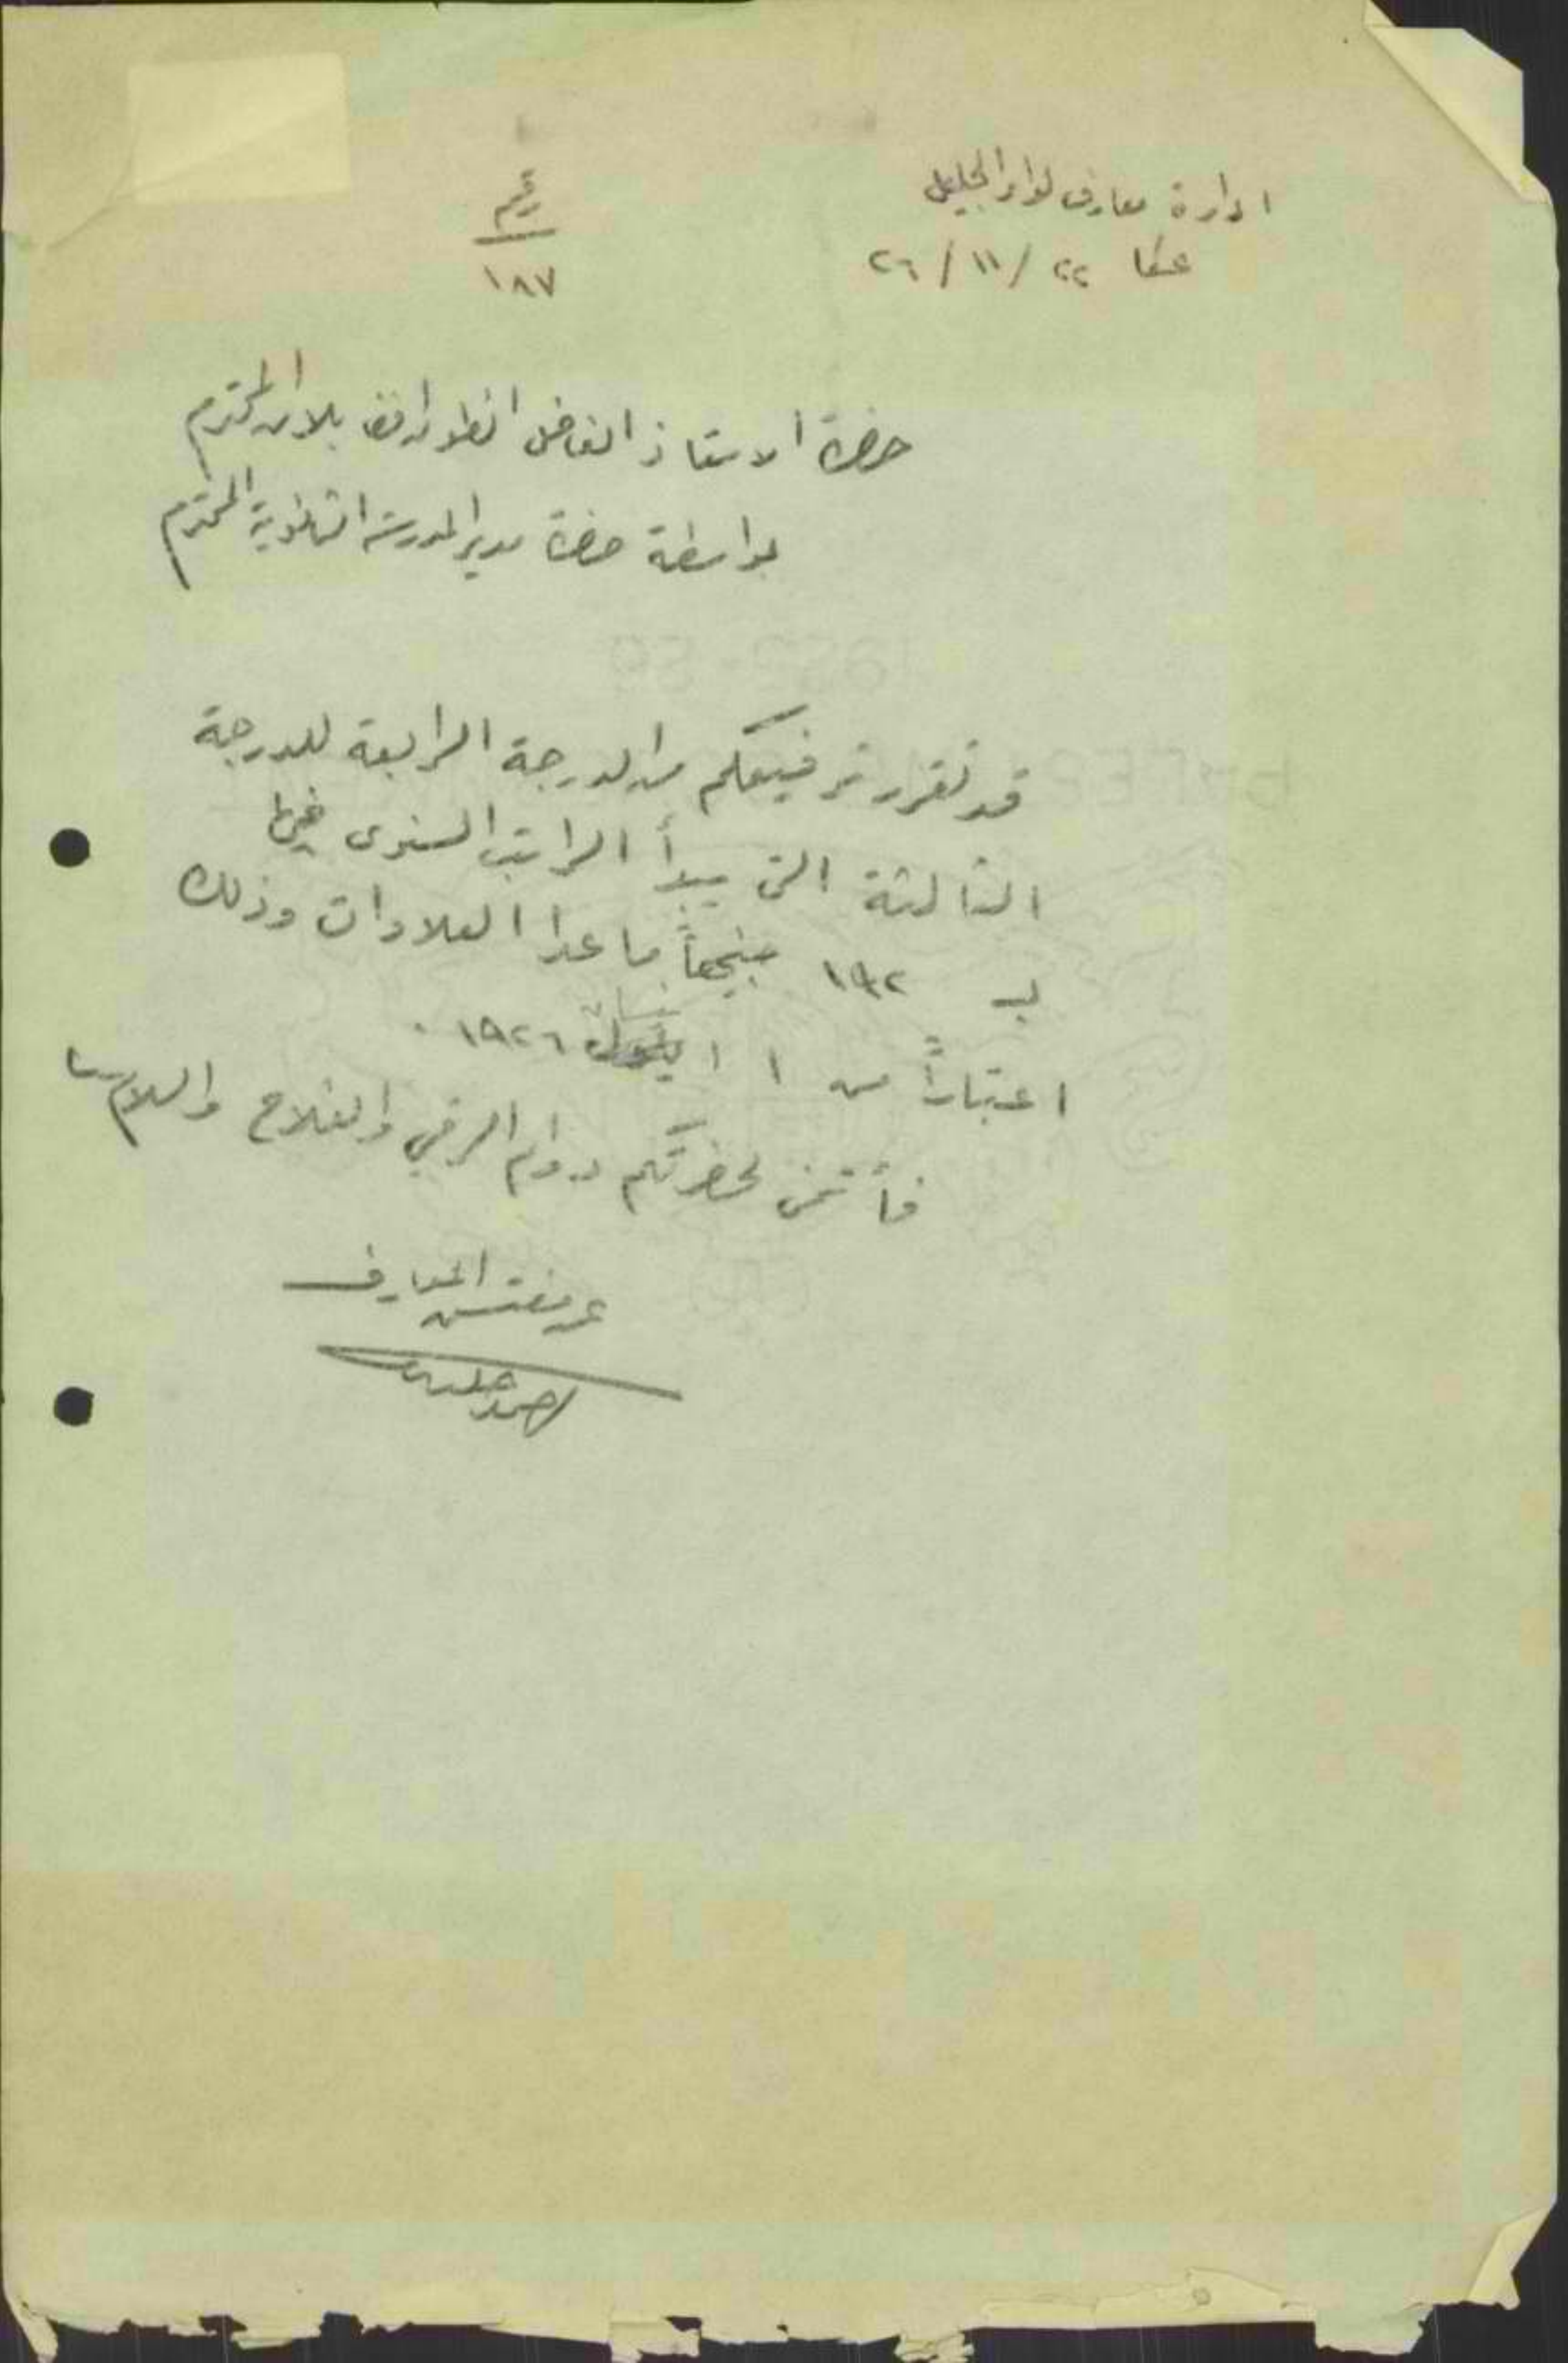 ادارة معارف لواء الجليل
عكا ٢٢ / ١١ / ٢٦
رقم
١٨٧
حضرة الاستاذ الفاضل انطوان افندي بلان المحترم
بواسطة حضرة مدير المدرسة الثانوية المحترم
قد تقرر ترفيعكم من الدرجة الرابعة للدرجة
الثالثة التي يبدأ الراتب السنوى فيها
بـ ١٩٢ جنيهاً ما عدا العلاوات وذلك
اعتباراً من ١ نيسان ١٩٢٦ .
فأتمنى لحضرتكم دوام الرقي والفلاح والسلام
عن مفتش المعارف
احمد خليفه